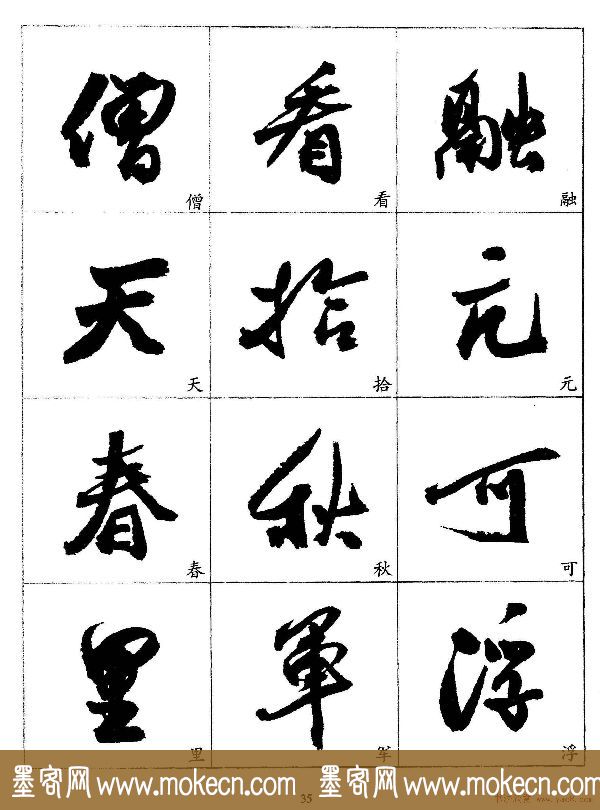 僧 看 融
僧 看 融
天 拾 元
天 拾 元
春 秋 可
春 秋 可
里 軍 浮
里 军 浮
墨客网 www.mokecn.com 墨客网 www.mokecn.com
35